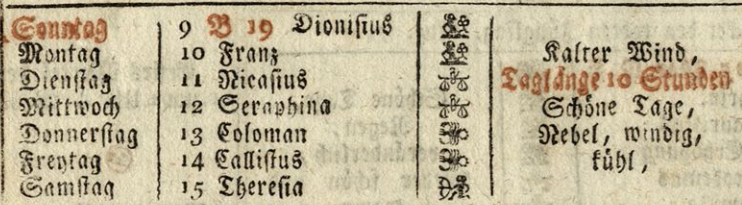 Sonntag 9 B 19 Dionisius
Montag 10 Franz Kalter Wind,
Dienstag 11 Nicasius Taglänge 10 Stunden
Mittwoch 12 Seraphina Schöne Tage,
Donnerstag 13 Coloman Nebel, windig,
Freytag 14 Callistus kühl,
Samstag 15 Theresia